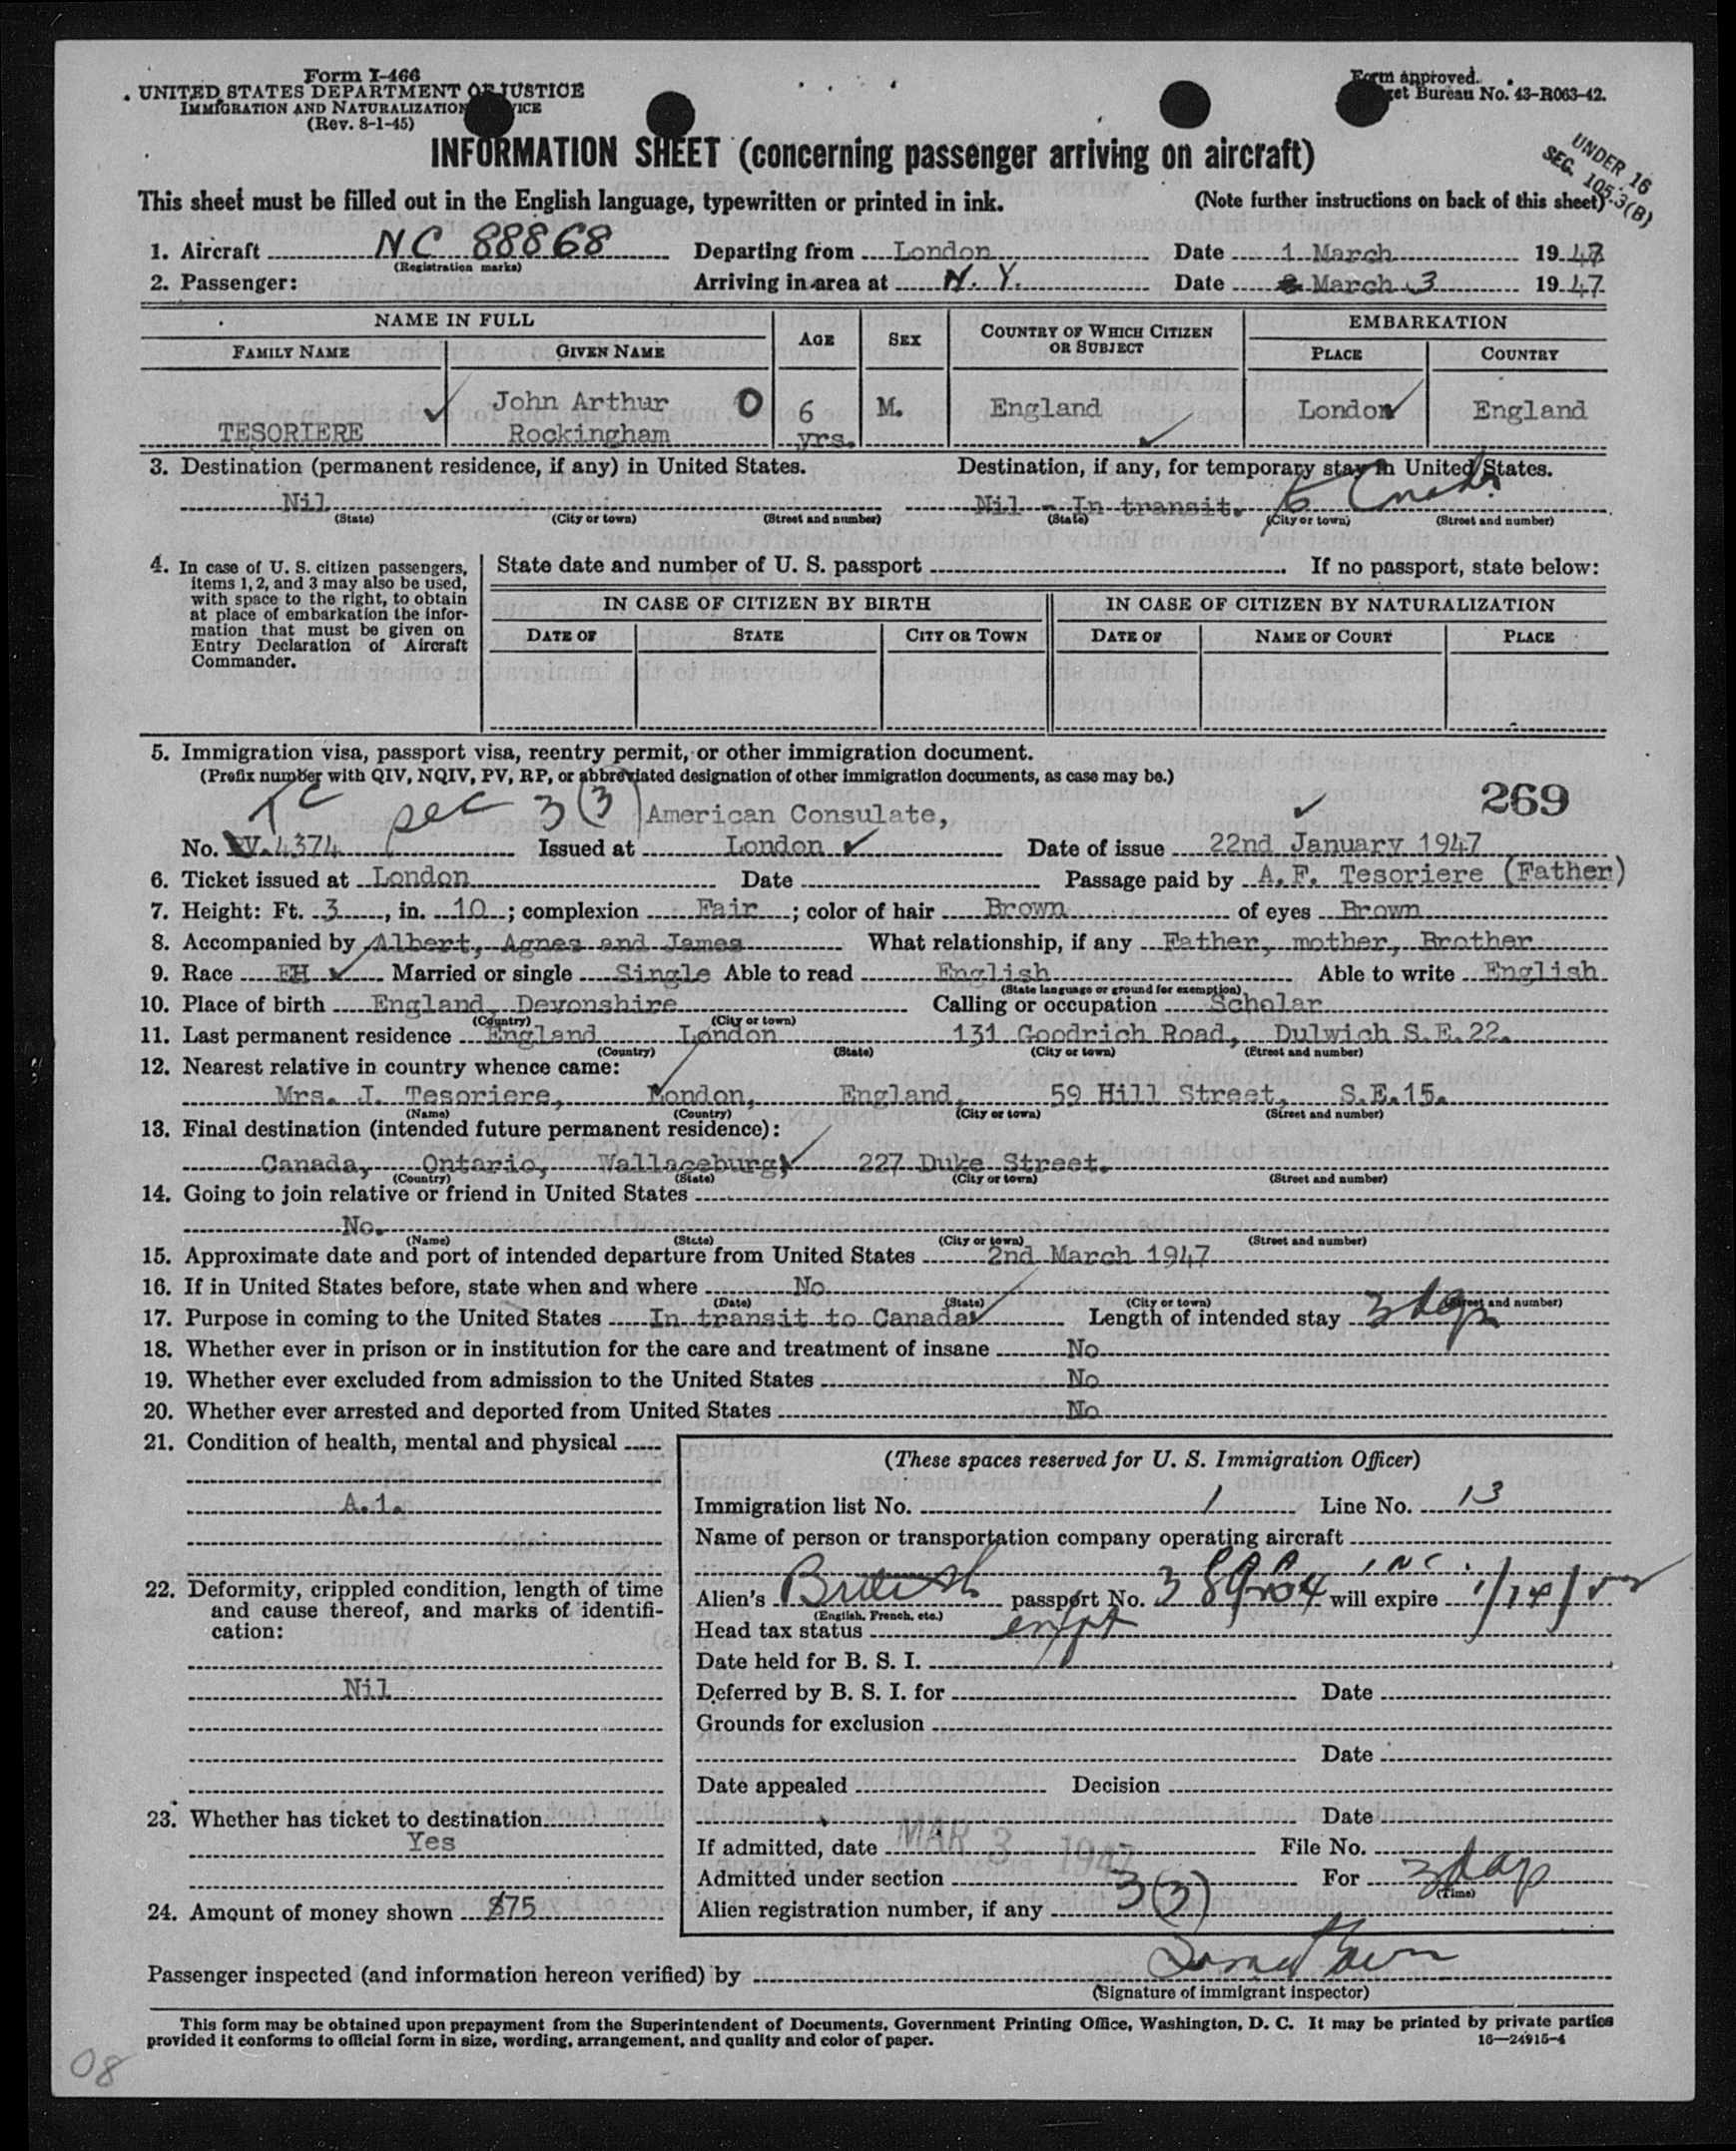 Form I-466
UNITED STATES DEPARTMENT OF JUSTICE
IMMIGRATION AND NATURALIZATION
(Rev. 8-1-45)
Form approved.
Bureau No. 43-R063-42.
INFORMATION SHEET (concerning passenger arriving on aircraft)
UNDER 16
SEC. 105.3(B)
This sheet must be filled out in the English language, typewritten or printed in ink. (Note further instructions on back of this sheet)
1. Aircraft NC 88868 Departing from London Date 1 March 1947
(Registration marks)
2. Passenger: Arriving in area at N.Y. Date March 3 1947
NAME IN FULL AGE SEX COUNTRY OF WHICH CITIZEN OR SUBJECT EMBARKATION
FAMILY NAME GIVEN NAME PLACE COUNTRY
TESORIERE John Arthur Rockingham O 6 yrs. M. England London England
3. Destination (permanent residence, if any) in United States. Destination, if any, for temporary stay in United States.
Nil Nil - In transit. to Canada
(State) (City or town) (Street and number) (State) (City or town) (Street and number)
4. In case of U. S. citizen passengers, items 1, 2, and 3 may also be used, with space to the right, to obtain at place of embarkation the information that must be given on Entry Declaration of Aircraft Commander.
State date and number of U. S. passport If no passport, state below:
IN CASE OF CITIZEN BY BIRTH IN CASE OF CITIZEN BY NATURALIZATION
DATE OF STATE CITY OR TOWN DATE OF NAME OF COURT PLACE
5. Immigration visa, passport visa, reentry permit, or other immigration document.
(Prefix number with QIV, NQIV, PV, RP, or abbreviated designation of other immigration documents, as case may be.)
TC sec 3(3) American Consulate, 269
No. V.4374 Issued at London Date of issue 22nd January 1947
6. Ticket issued at London Date Passage paid by A.F. Tesoriere (Father)
7. Height: Ft. 3, in. 10; complexion Fair; color of hair Brown of eyes Brown
8. Accompanied by Albert, Agnes and James What relationship, if any Father, mother, Brother
9. Race EH Married or single Single Able to read English Able to write English
(State language or ground for exemption)
10. Place of birth England, Devonshire Calling or occupation Scholar
(Country) (City or town)
11. Last permanent residence England London 131 Goodrich Road, Dulwich S.E.22.
(Country) (State) (City or town) (Street and number)
12. Nearest relative in country whence came:
Mrs. J. Tesoriere, London, England, 59 Hill Street, S.E.15.
(Name) (Country) (City or town) (Street and number)
13. Final destination (intended future permanent residence):
Canada, Ontario, Wallaceburg, 227 Duke Street.
(Country) (State) (City or town) (Street and number)
14. Going to join relative or friend in United States
No.
(Name) (State) (City or town) (Street and number)
15. Approximate date and port of intended departure from United States 2nd March 1947
16. If in United States before, state when and where No
(Date) (State) (City or town) (Street and number)
17. Purpose in coming to the United States In transit to Canada Length of intended stay 3 days
18. Whether ever in prison or in institution for the care and treatment of insane No
19. Whether ever excluded from admission to the United States No
20. Whether ever arrested and deported from United States No
21. Condition of health, mental and physical
A.1.
22. Deformity, crippled condition, length of time and cause thereof, and marks of identification:
Nil
23. Whether has ticket to destination
Yes
24. Amount of money shown $75
(These spaces reserved for U. S. Immigration Officer)
Immigration list No. 1 Line No. 13
Name of person or transportation company operating aircraft
INC.
Alien's British passport No. will expire
(English, French, etc.)
Head tax status
Date held for B. S. I.
Deferred by B. S. I. for Date
Grounds for exclusion
Date
Date appealed Decision
Date
If admitted, date MAR 3 - 1947 File No.
Admitted under section 3(3) For 3 days
(Time)
Alien registration number, if any
Passenger inspected (and information hereon verified) by
(Signature of immigrant inspector)
This form may be obtained upon prepayment from the Superintendent of Documents, Government Printing Office, Washington, D. C. It may be printed by private parties
provided it conforms to official form in size, wording, arrangement, and quality and color of paper. 16—24915-4
08